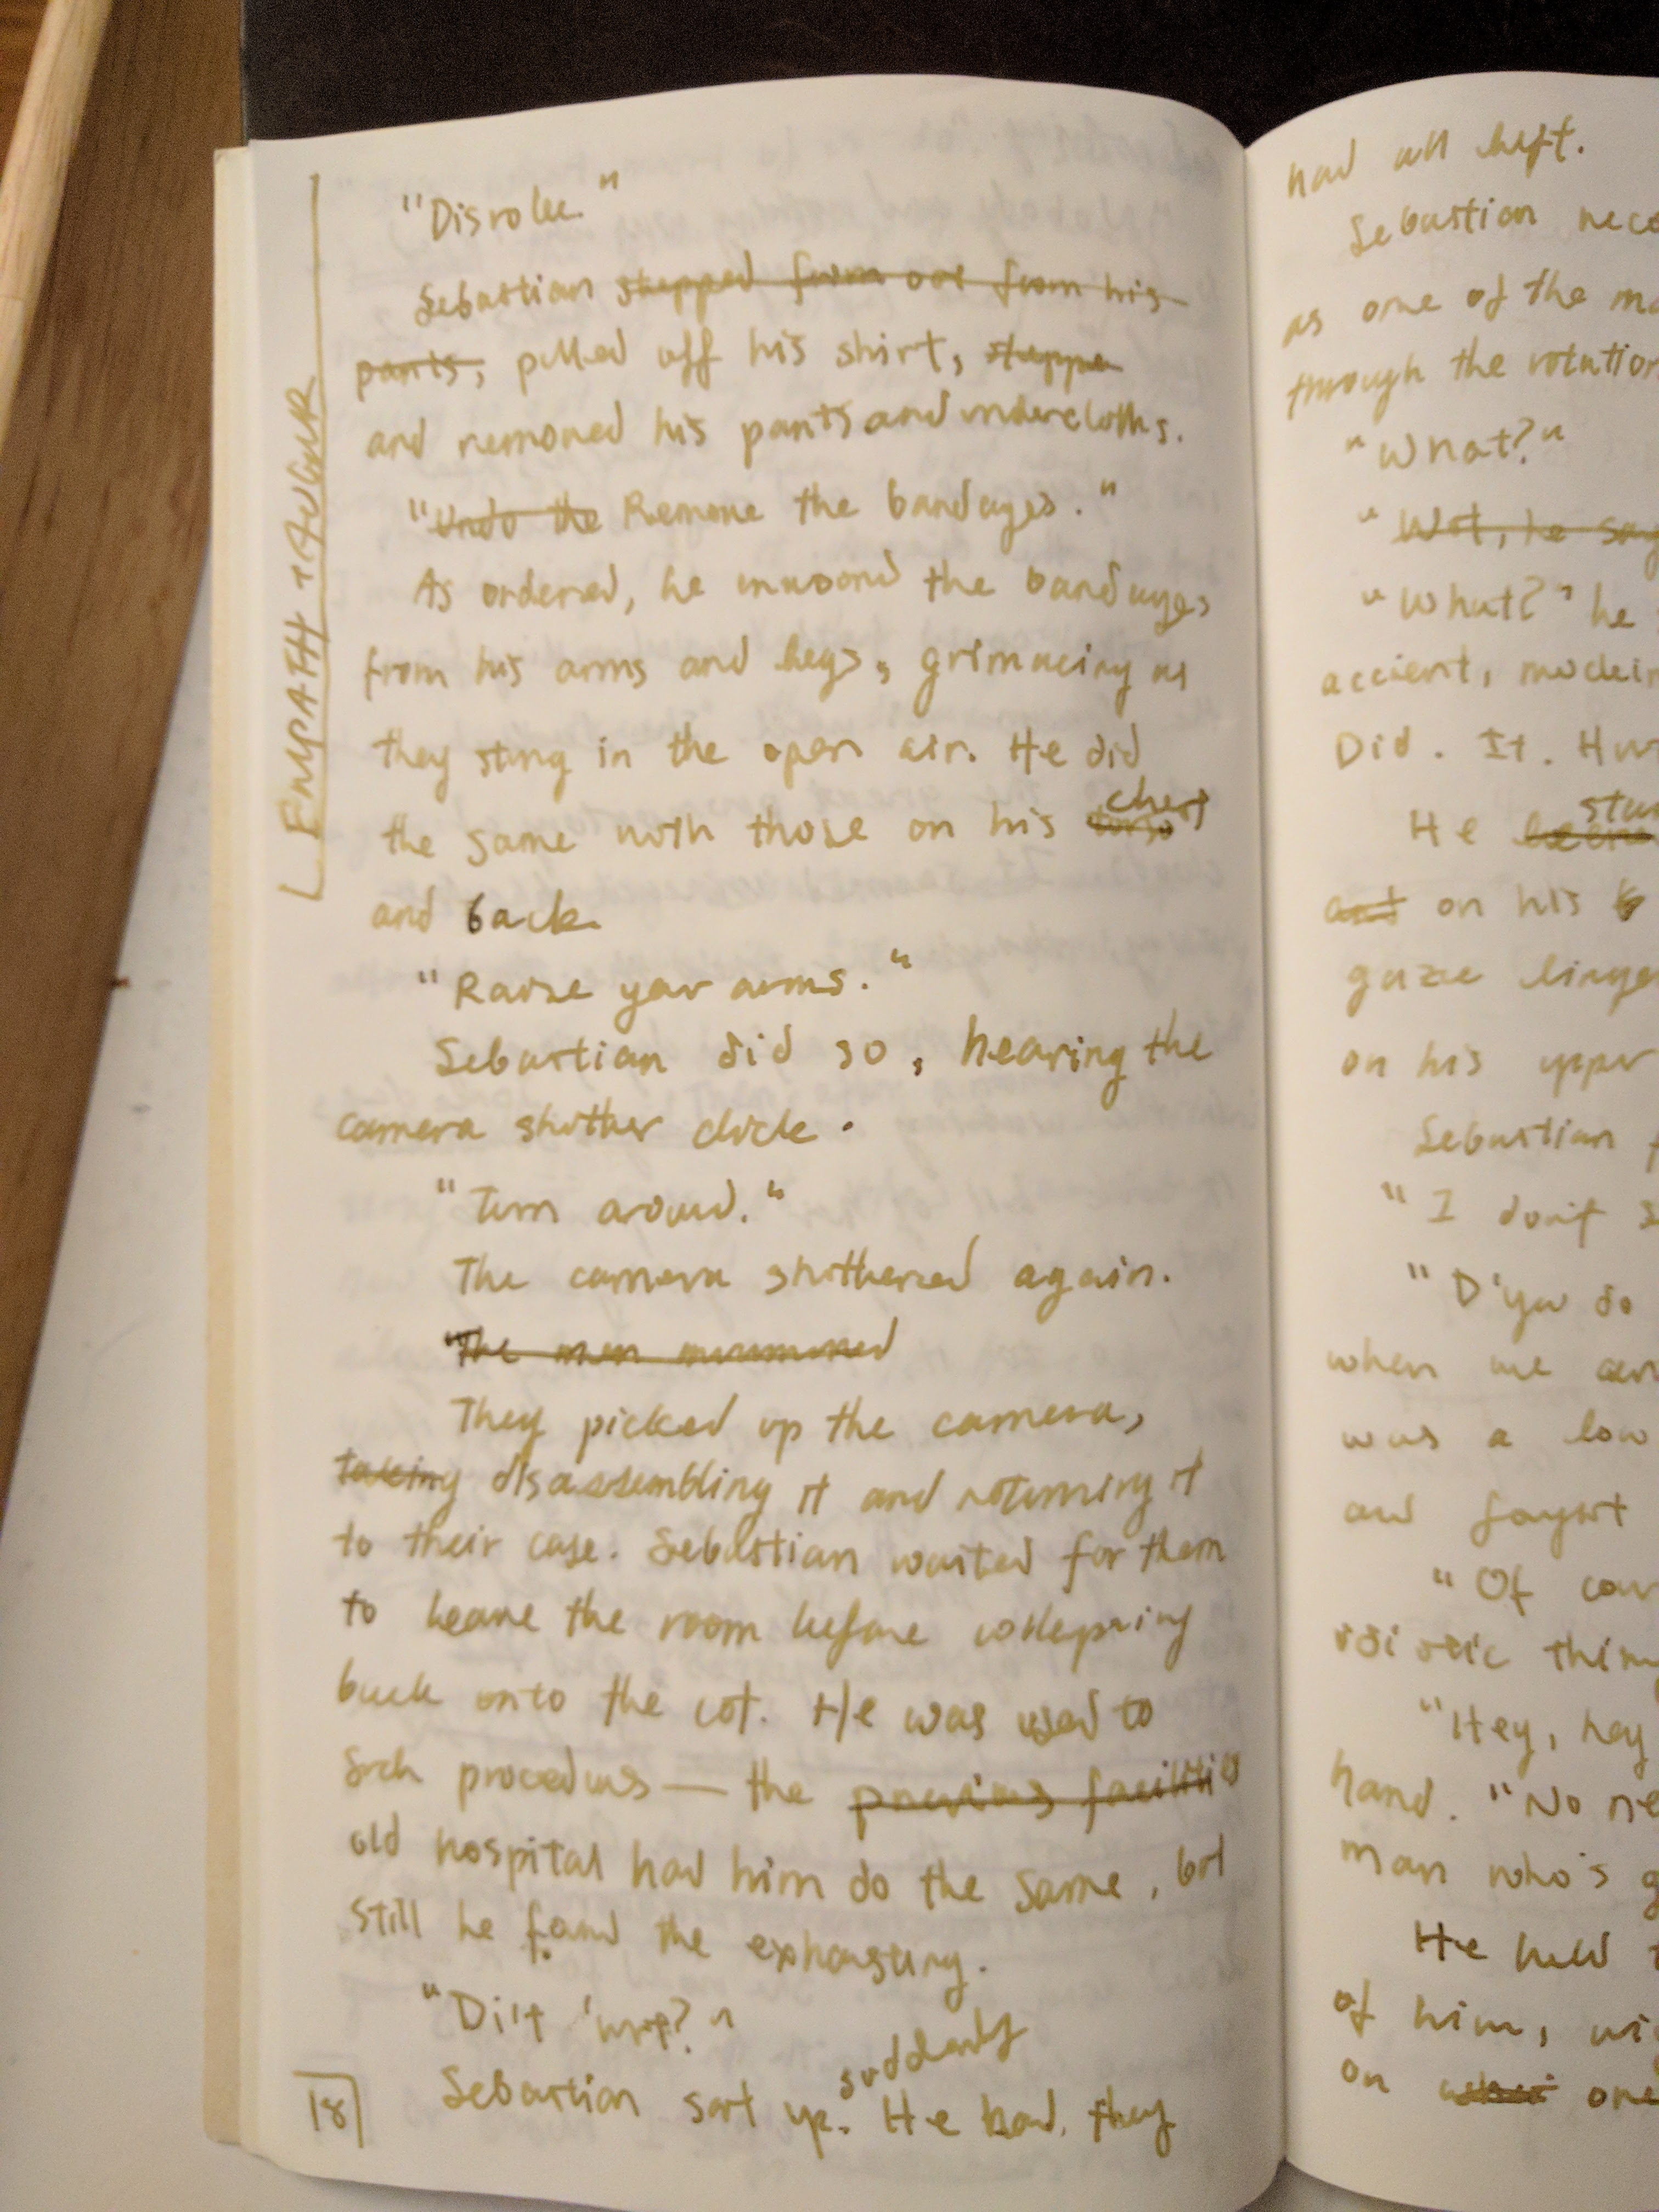 EMPATH + AUGUR
"Disrobe."
Sebastian stepped form out from his
pants, pulled off his shirt, steppe
and removed his pants and undercloths.
"Undo the Remove the bandages."
As ordered, he unwound the bandages
from his arms and legs, grimacing as
they stung in the open air. He did
the same with those on his torso chest
and back.
"Raise your arms."
Sebastian did so, hearing the
camera shutter click.
"Turn around."
The camera shuttered again.
The men murmured
They picked up the camera,
taking disassembling it and returning it
to their case. Sebastian waited for them
to leave the room before collapsing
back onto the cot. He was used to
such procedures — the previous facilities
old hospital had him do the same, but
still he found the exhausting.
"Di't 'urt?"
Sebastian sat up suddenly. He had. they
18
had all left.
Sebastian
as one of the
through the
"What?"
"Wot, he
"What?" he
accient,
Did. It.
He
on his
gaze
on his upper
Sebastian
"I don't
"D'ya do
when we
was a low
"Of
"Hey, hey
hand. "No
man who's
He held
of him,
on